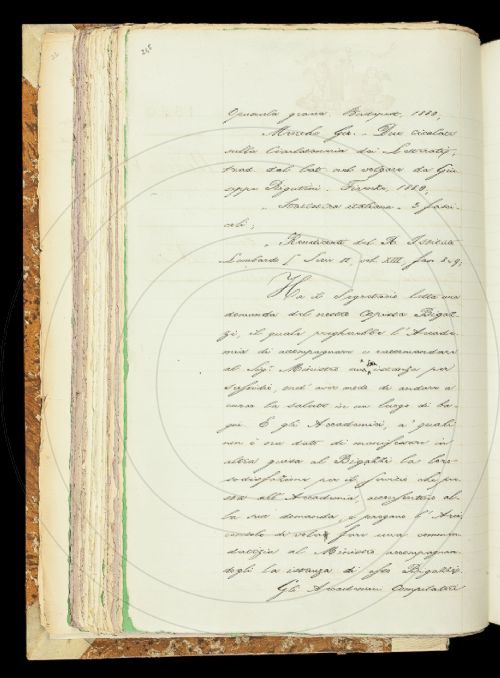 248
grava. Budapest, 1880;
Mencke Gio. - Due cicalate
sulla Ciarlataneria dei Letterati,
trad. dal lat. nel volgare da Giu-
seppe Rigutini. Firenze, 1880;
" Statistica italiana - 3 fasci-
coli;
" Rendiconti del R. Istituto
Lombardo (Serie II, vol. XIII, fas. 8-9;
Ha il Segretario letta una
domanda del nostro Copista Bigaz-
zi, il quale pregherebbe l'Accade-
mia di accompagnare e raccomandare
al Sig. Ministro una istanza per
sussidii, ond' aver modo di andare a
curar la salute in un luogo di ba-
gni. E gli Accademici, a' quali
non è ora dato di manifestare in
altra guisa al Bigazzi la loro
sodisfazione per il servizio che pre-
sta all' Accademia, acconsentono al-
la sua domanda, e pregano l' Arci-
consolo di voler fare una commen-
datizia al Ministro accompagnan-
dogli la istanza di esso Bigazzi.
Gli Accademici Compilatori